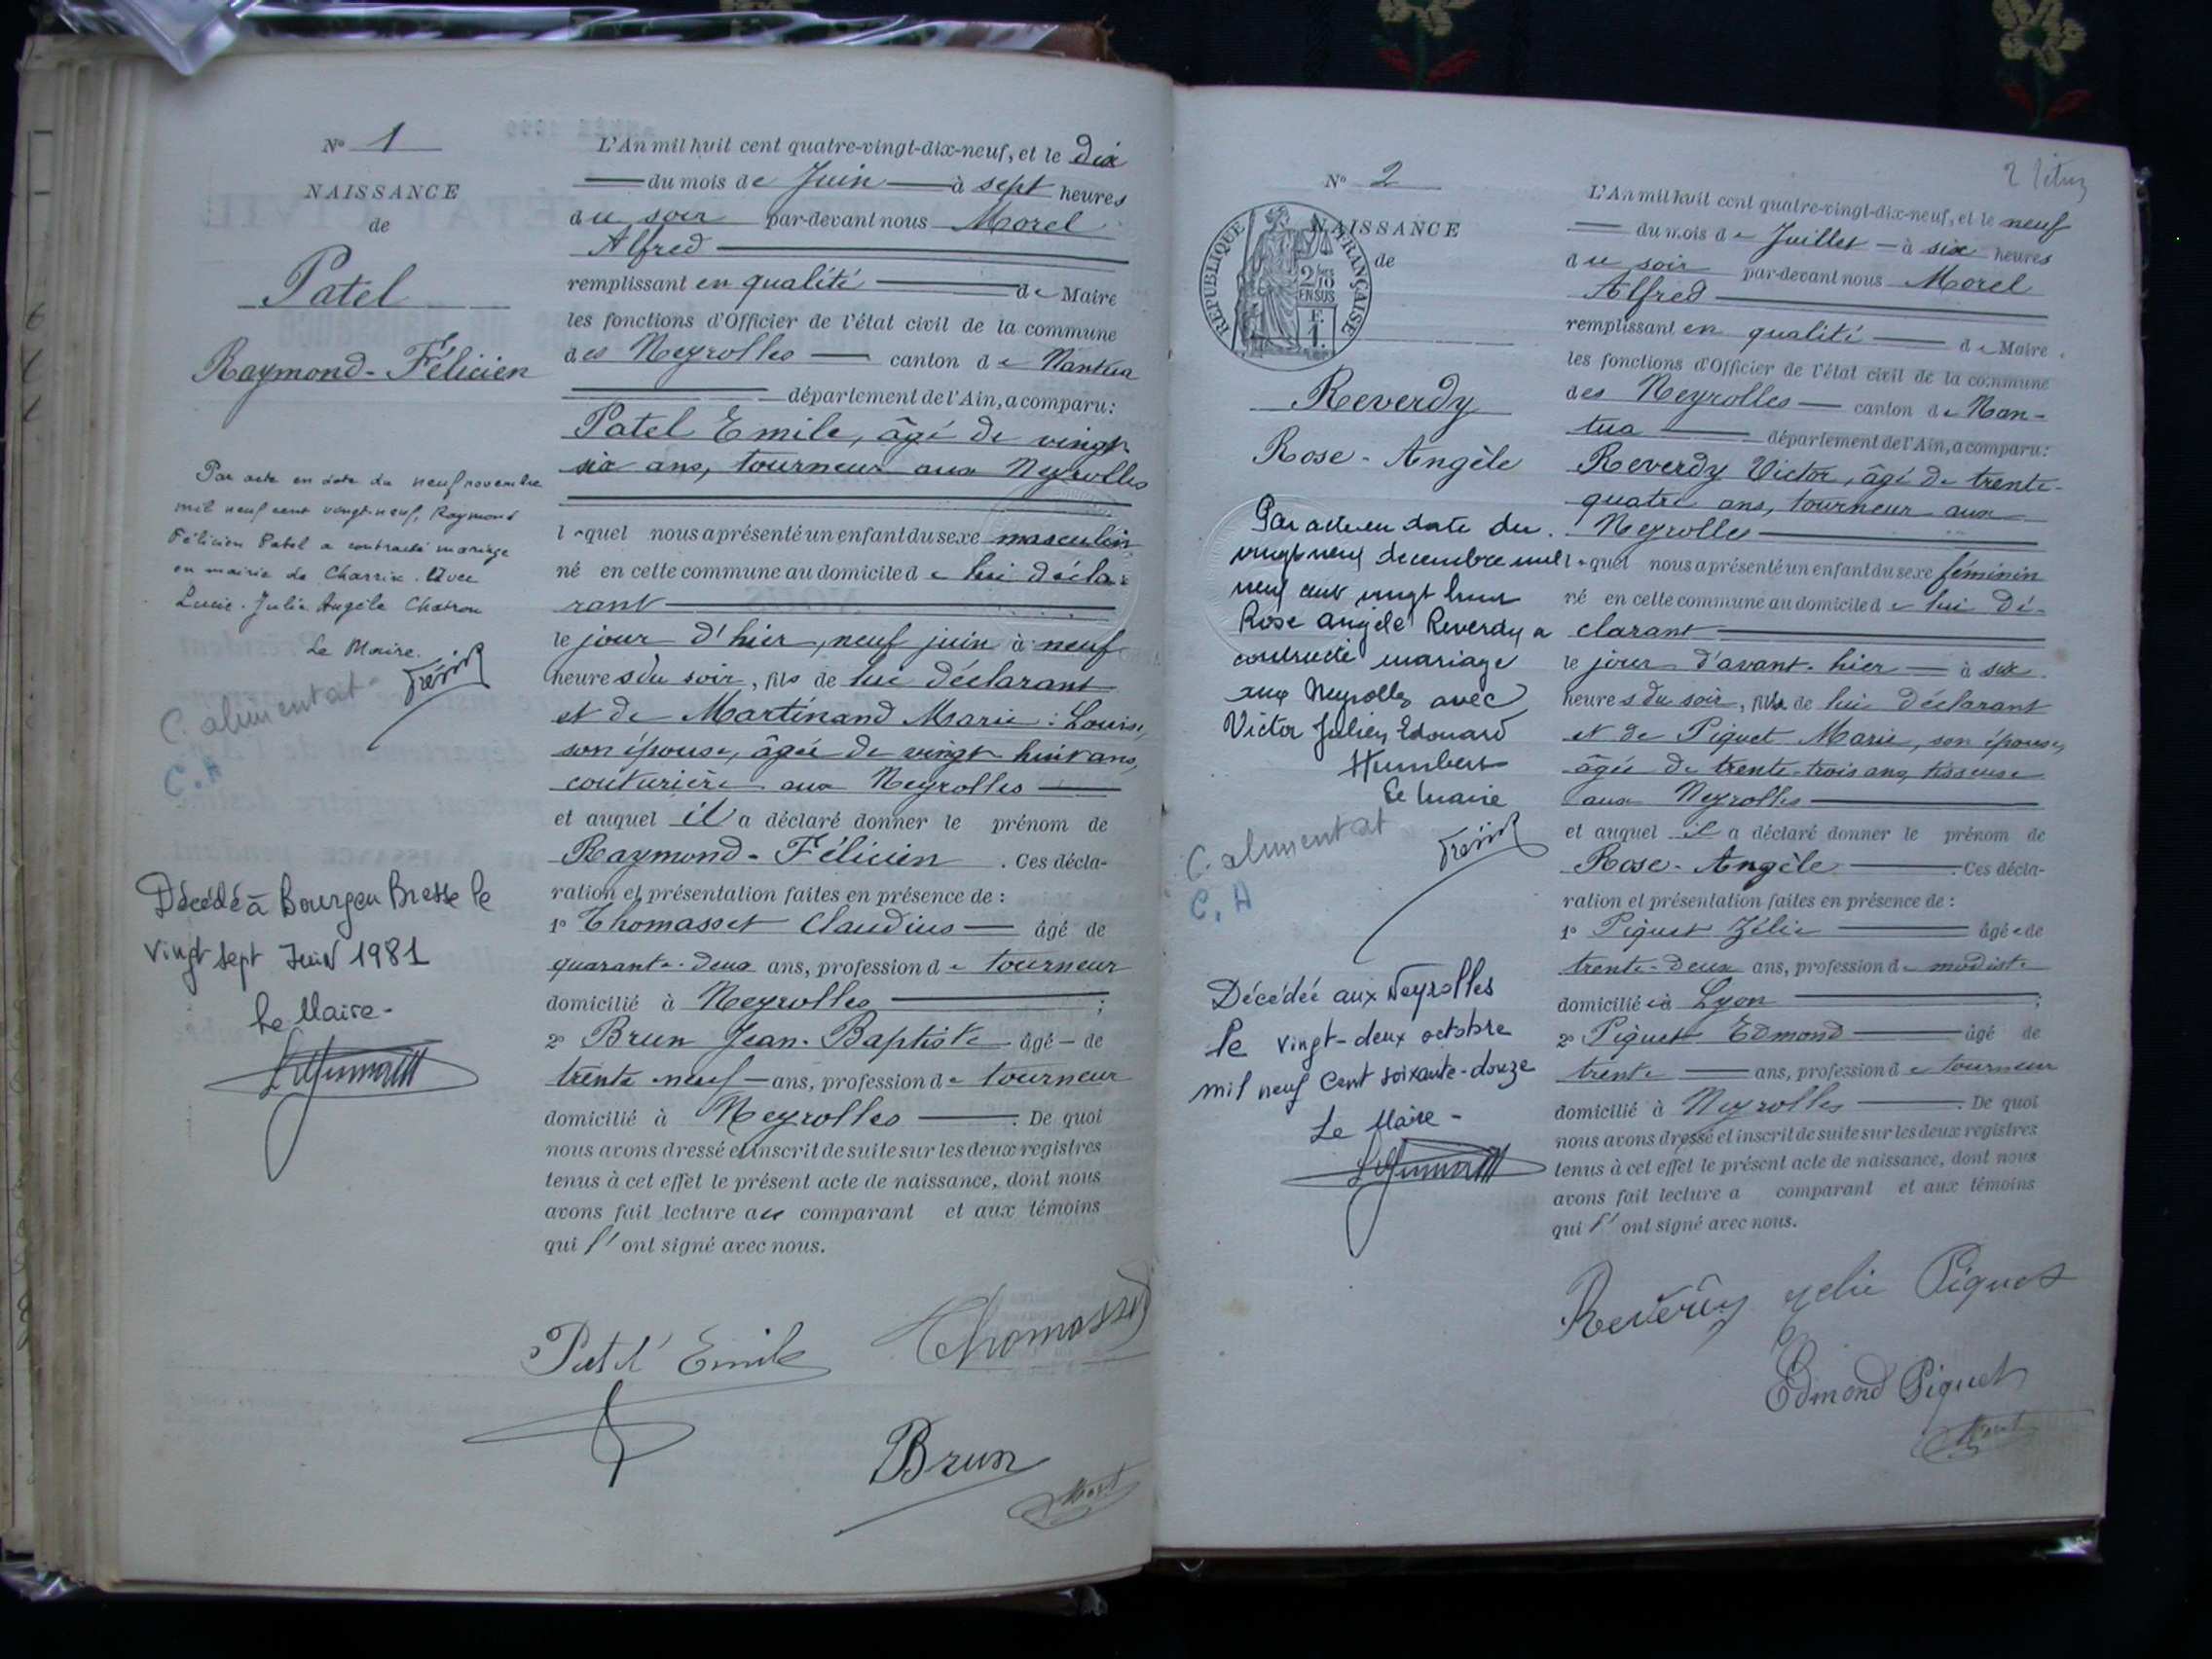 Nº 1
NAISSANCE
de
Patel
Raymond-Félicien
Par acte en date du neuf novembre
mil neuf cent vingt-neuf, Raymond
Félicien Patel a contracté mariage
en mairie de Charrix. Avec
Lucie. Julie Angèle Chatron
Le Maire.
C. alimentat
C. A
Décédé à Bourg en Bresse le
vingt sept Juin 1981
Le Maire-
L'An mil huit cent quatre-vingt-dix-neuf, et le dix
du mois de Juin à sept heures
du soir par-devant nous Morel
Alfred
remplissant en qualité de Maire
les fonctions d'Officier de l'état civil de la commune
des Neyrolles canton de Nantua
département de l'Ain, a comparu:
Patel Emile, âgé de vingt
six ans, tourneur aux Neyrolles
lequel nous a présenté un enfant du sexe masculin
né en cette commune au domicile de lui décla-
rant
le jour d'hier, neuf juin à neuf
heures du soir, fils de lui déclarant
et de Martinand Marie-Louise,
son épouse, âgée de vingt huit ans,
couturière aux Neyrolles
et auquel il a déclaré donner le prénom de
Raymond-Félicien. Ces décla-
ration et présentation faites en présence de :
1º Thomasset Claudius âgé de
quarante-deux ans, profession de tourneur
domicilié à Neyrolles ;
2º Brun Jean-Baptiste âgé de
trente neuf ans, profession de tourneur
domicilié à Neyrolles. De quoi
nous avons dressé et inscrit de suite sur les deux registres
tenus à cet effet le présent acte de naissance, dont nous
avons fait lecture au comparant et aux témoins
qui l'ont signé avec nous.
Patel Emile
Thomasset
Brun
Nº 2
NAISSANCE
de
RÉPUBLIQUE FRANÇAISE
2/10
EN SUS
F.
1.
Reverdy
Rose-Angèle
Par acte en date du
vingt neuf decembre mil
neuf cent vingt huit
Rose Angèle Reverdy a
contracté mariage
aux Neyrolles avec
Victor Julien Edouard
Humbert
Le Maire
C. alimentat
C. A
Décédée aux Neyrolles
le vingt-deux octobre
mil neuf cent soixante-douze
Le Maire-
L'An mil huit cent quatre-vingt-dix-neuf, et le neuf
du mois de Juillet à six heures
du soir par-devant nous Morel
Alfred
remplissant en qualité de Maire
les fonctions d'Officier de l'état civil de la commune
des Neyrolles canton de Nan-
tua département de l'Ain, a comparu:
Reverdy Victor, âgé de trente-
quatre ans, tourneur aux
Neyrolles
lequel nous a présenté un enfant du sexe féminin
né en cette commune au domicile de lui dé-
clarant
le jour d'avant-hier à six
heures du soir, fille de lui déclarant
et de Piquet Marie, son épouse,
âgée de trente-trois ans, tisseuse
aux Neyrolles
et auquel il a déclaré donner le prénom de
Rose-Angèle. Ces décla-
ration et présentation faites en présence de :
1º Piquet Zélie âgée de
trente-deux ans, profession de modiste
domiciliée à Lyon ;
2º Piquet Edmond âgé de
trente ans, profession de tourneur
domicilié à Neyrolles. De quoi
nous avons dressé et inscrit de suite sur les deux registres
tenus à cet effet le présent acte de naissance, dont nous
avons fait lecture a comparant et aux témoins
qui l'ont signé avec nous.
Reverdy Zelie Piquet
Edmond Piquet